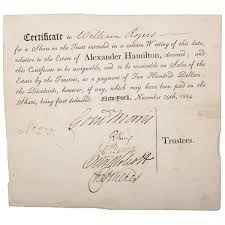 Certificate to William Rogers
for a Share in the Trust intended in a certain Writing of this date,
relation to the Estate of Alexander Hamilton, deceased; and
this Certificate to be assignable, and to be receivable on Sales of the
Estate by the Trustees, as a payment of Two Hundred Dollars;
the Dividends, however, if any, which may have been paid on the
Share, being first deducted. New-York, November 29th, 1804.
Gouv Morris
Trustees.